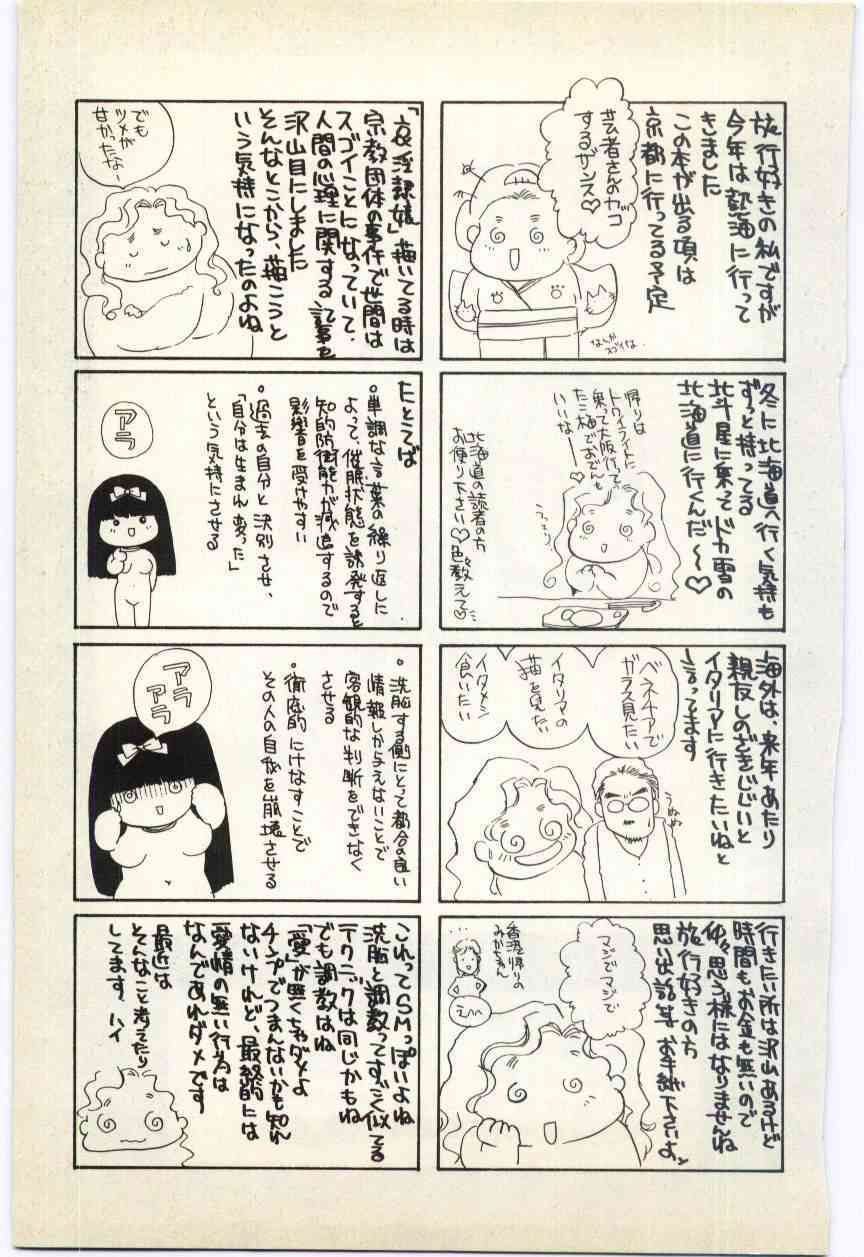 旅行好きの私ですが
今年は熱海に行って
きました
この本が出る頃は
京都に行ってる予定
芸者さんのカッコ
するザンス♡
なんか
スゴイな
冬に北海道へ行く気持も
ずっと持ってる
北斗星に乗ってドカ雪の
北海道に行くんだ～♡
帰りは
トワイライトに
乗って大阪行って
いいな
うっとり
北海道の読者の方
お便り下さい♡色々教えて♡
海外は、来年あたり
親友しのざきじじいと
イタリアに行きたいねと
言ってます
ベネチアで
ガラス見たい
イタリアの
猫を見たい
イタメシ
食いたい
行きたい所は沢山あるけど
時間もお金も無いので
仲々思う様にはなりませんね
旅行好きの方
思い出話等お手紙下さいよ
マジでマジで
香港帰りの
みかちゃん
えへへ
描いてる時は
宗教団体の事件で世間は
スゴイことになっていて、
人間の心理に関する記事を
沢山目にしました
そんなとこから、描こうと
いう気持になったのよね
でも
ツメが
甘かったなー
たとえば
・単調な言葉の繰り返しに
よって、催眠状態を誘発すると
知的防衛能力が減退するので
影響を受けやすい
・過去の自分と決別させ、
「自分は生まれ変った」
という気持にさせる
アラ
・洗脳する側にとって都合の良い
情報しか与えないことで
客観的な判断をできなく
させる
・徹底的にけなすことで
その人の自我を崩壊させる
アラ
アラ
これってSMっぽいよね
洗脳と調教ってすごく似てる
テクニックは同じかもね
でも調教はね
「愛」が無くちゃダメよ
チンプでつまんないかも知れ
ないけれど、最終的には
愛情の無い行為は
なんであれダメです
最近は
そんなこと考えたり
してます、ハイ